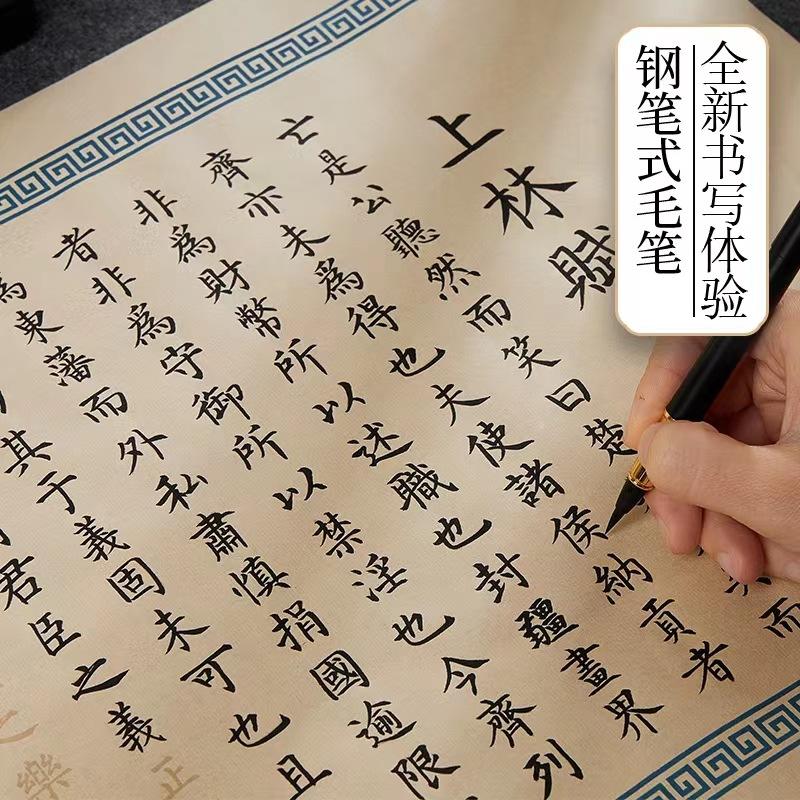 全新书写体验
钢笔式毛笔
上林賦
亡是公聽然而笑曰楚而
齊亦未為得也夫使諸侯納貢者
非為財幣所以述職也封疆畫界
者非為守御所以禁淫也今齊列
為東藩而外私肅慎捐國逾限
其于義固未可也且
君臣之義
正
樂